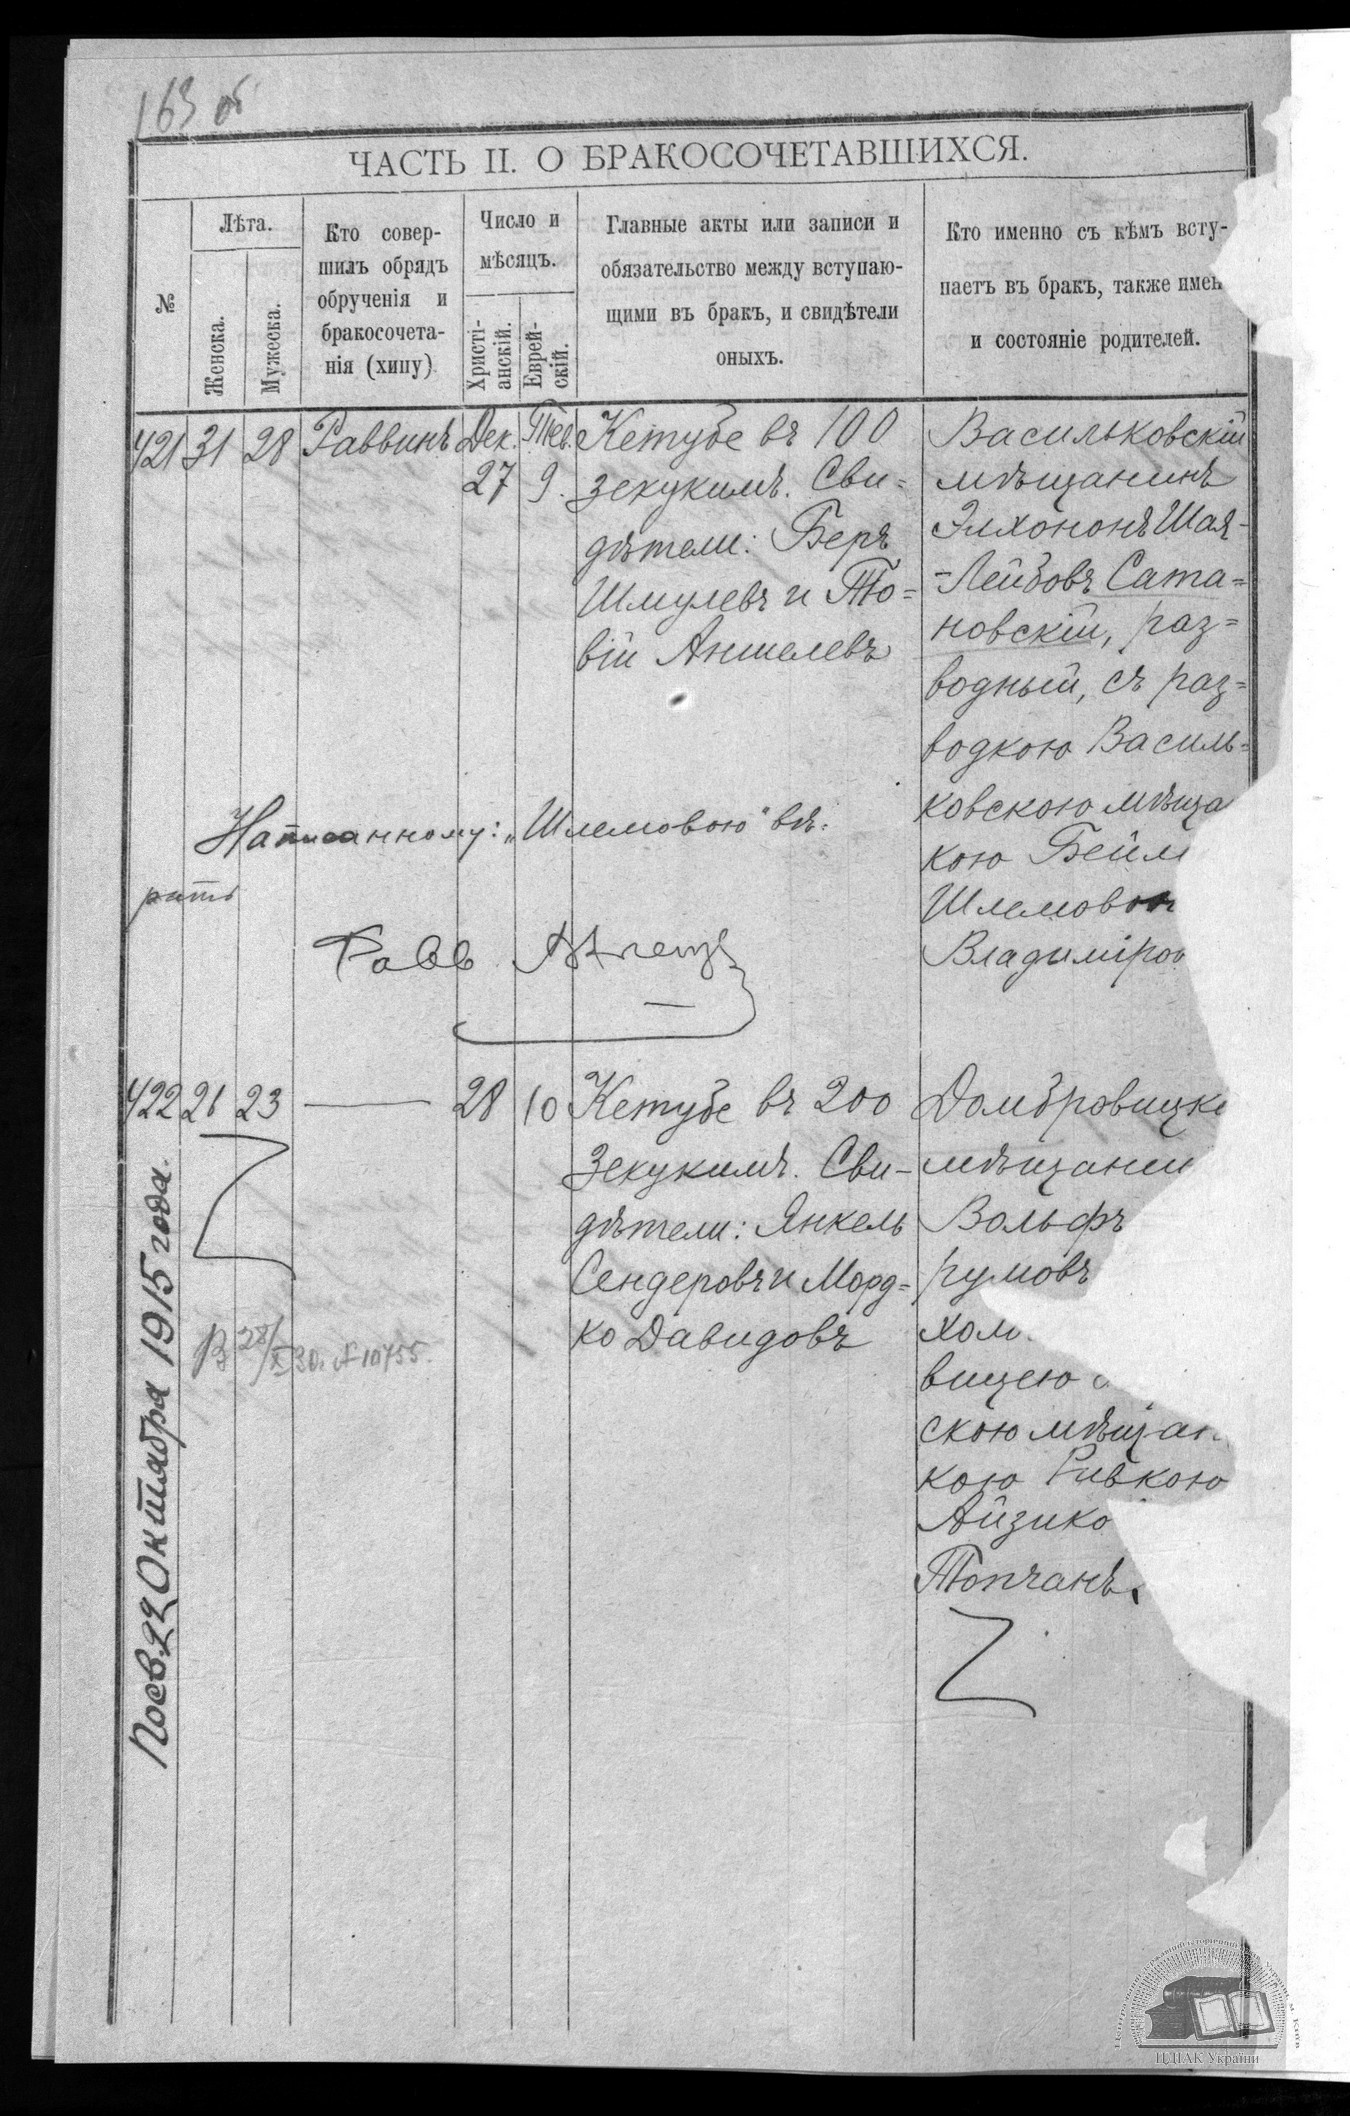 163 об
ЧАСТЬ II. О БРАКОСОЧЕТАВШИХСЯ.
№
Лѣта.
Женска.
Мужеска.
Кто совер-
шилъ обрядъ
обрученія и
бракосочета-
нія (хипу)
Число и
мѣсяцъ.
Христі-
анскій.
Еврей-
скій.
Главные акты или записи и
обязательство между вступаю-
щими въ бракъ, и свидѣтели
оныхъ.
Кто именно съ кѣмъ всту-
паетъ въ бракъ, также имен
и состояніе родителей.
421 31 28 Раввинъ Дек. 27 Тев. 9.
Кетубе въ 100
зекукимъ. Сви-
дѣтели: Беръ
Шмулевъ и То-
вій Аншелевъ
Васильковскій
мѣщанинъ
Элхононъ Шая-
-Лейбовъ Сата-
новскій, раз-
водный, съ раз-
водкою Василь-
ковскою мѣща
кою Бейл
Шлемовою
Владиміров
Написанному: „Шлемовою" вѣ-
рить
Равв
422 21 23 — 28 10
Кетубе въ 200
Зекукимъ. Сви-
дѣтели: Янкель
Сендеровъ и Морд-
ко Давидовъ
Домбровицк
мѣщани
Вольфъ
румовъ
хол
вицею
скою мѣщан
кою Ривкою
Айзико
Топчанъ.
Пов. 22 Октября 1915 года.
В 28/X 30. № 10755.
ЦДІАК України